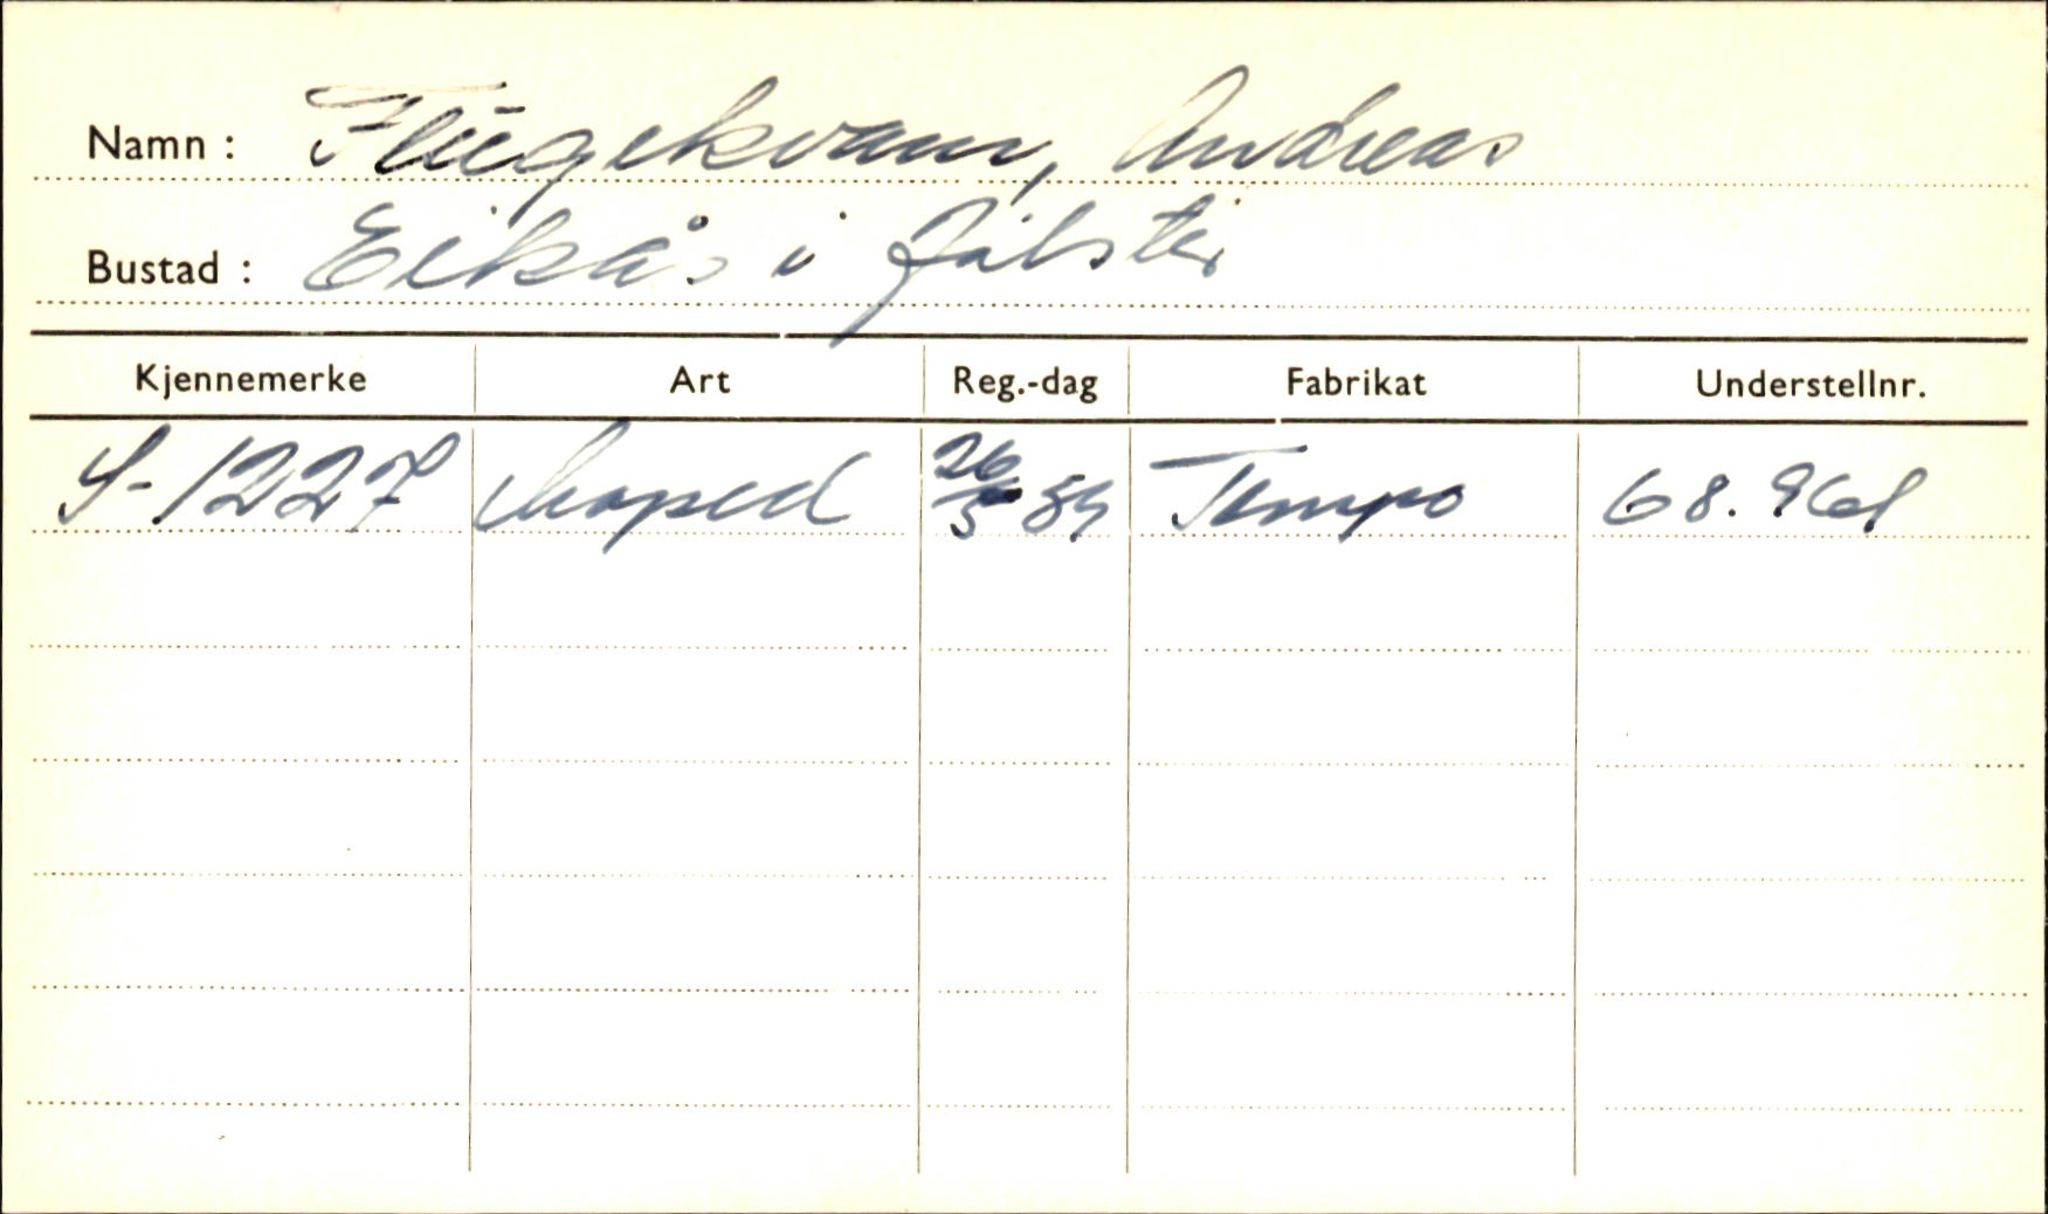 Namn : Flugekvam, Andreas
Bustad : Eikås i Jølster
Kjennemerke Art Reg.-dag Fabrikat Understellnr.
S-1227 Moped 26/5 59 Tempo 68.961